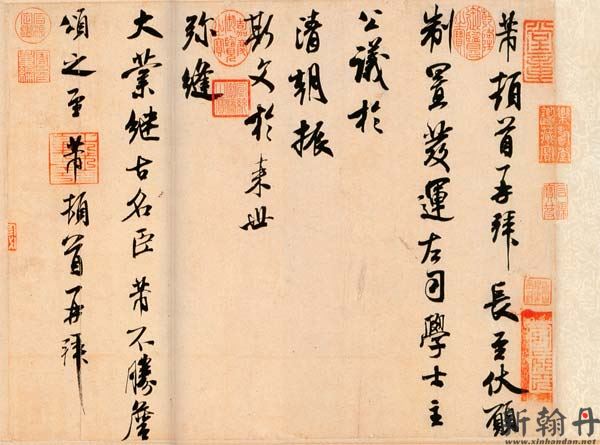 芾頓首再拜長至伏願
制置發運左司學士主
公議於
清朝振
斯文於来世
弥縫
大業継古名臣芾不勝詹
頌之至芾頓首再拜
新翰丹
www.xinhandan.net